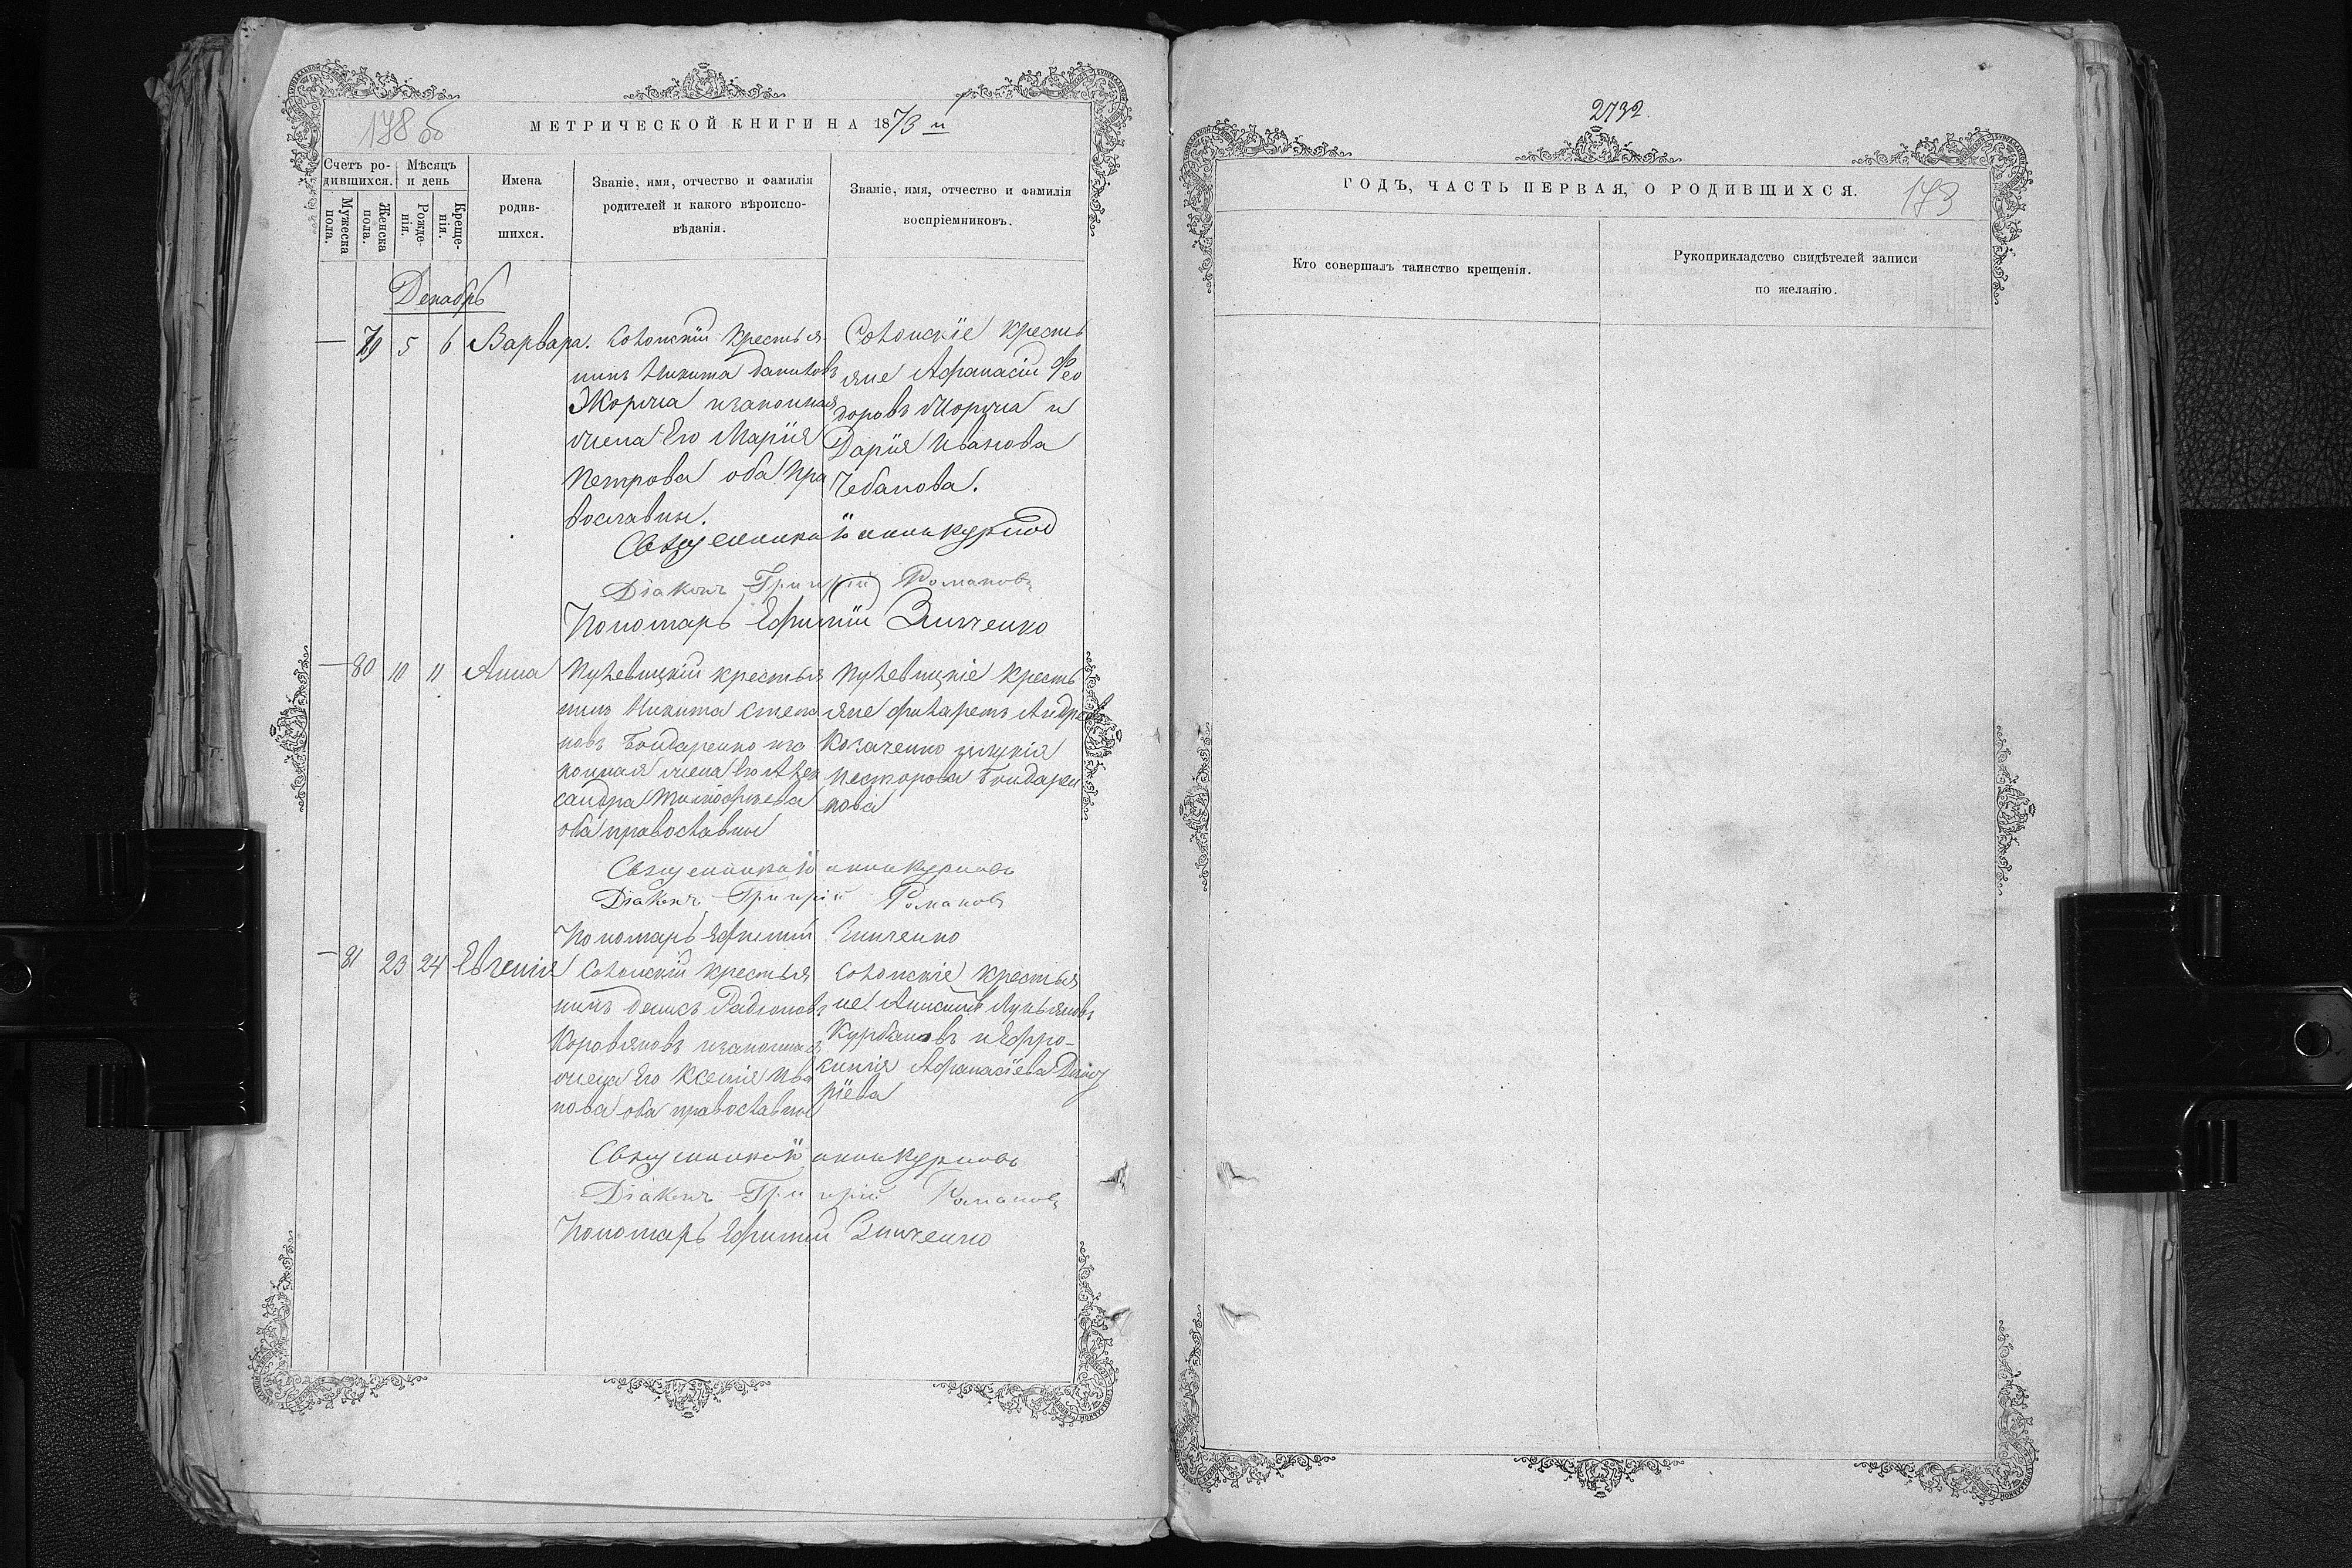 178 об
МЕТРИЧЕСКОЙ КНИГИ НА 1873 й
Счетъ ро-
дившихся.
Мужеска
пола.
Женска
пола.
Мѣсяцъ
и день
Рожде-
нія.
Креще-
нія.
Имена
родив-
шихся.
Званіе, имя, отчество и фамилія
родителей и какого вѣроиспо-
вѣданія.
Званіе, имя, отчество и фамилія
воспріемниковъ.
Декабрь
— 79 5 6 Варвара.
Солонскій крестья
нинъ Никита Даниловъ
Жорма изаконная
жена Его Марія
Петрова оба пра
вославны.
Солонскіе кресть
яне Афанасій Фео
доровъ Жорма и
Дарія Иванова
Чебанова.
Священникъ
Діаконъ Григорій Романовъ
Пономарь Ефимій Зинченко
— 80 10 11 Анна
крестья
нинъ Никита Степа
новъ Бондаренко иза
конная жена Его Алек
сандра Тимофѣева
оба православны
кресть
яне Филаретъ Андреевъ
Козаченко
Несторова Бондарен
кова
Священникъ
Діаконъ Григорій Романовъ
Пономарь Ефимій Зинченко
— 81 23 24 Евгенія
Солонскій крестья
нинъ Денисъ Радіоновъ
Коровяковъ изаконная
жена Его Ксенія Ива
нова оба православны
Солонскіе крестья
не Лукьяновъ
Курбановъ и Ефро-
синія Афанасіева
ріева
Священникъ
Діаконъ Григорій Романовъ
Пономарь Ефимій Зинченко
2732.
ГОДЪ, ЧАСТЬ ПЕРВАЯ, О РОДИВШИХСЯ.
173
Кто совершалъ таинство крещенія.
Рукоприкладство свидѣтелей записи
по желанію.